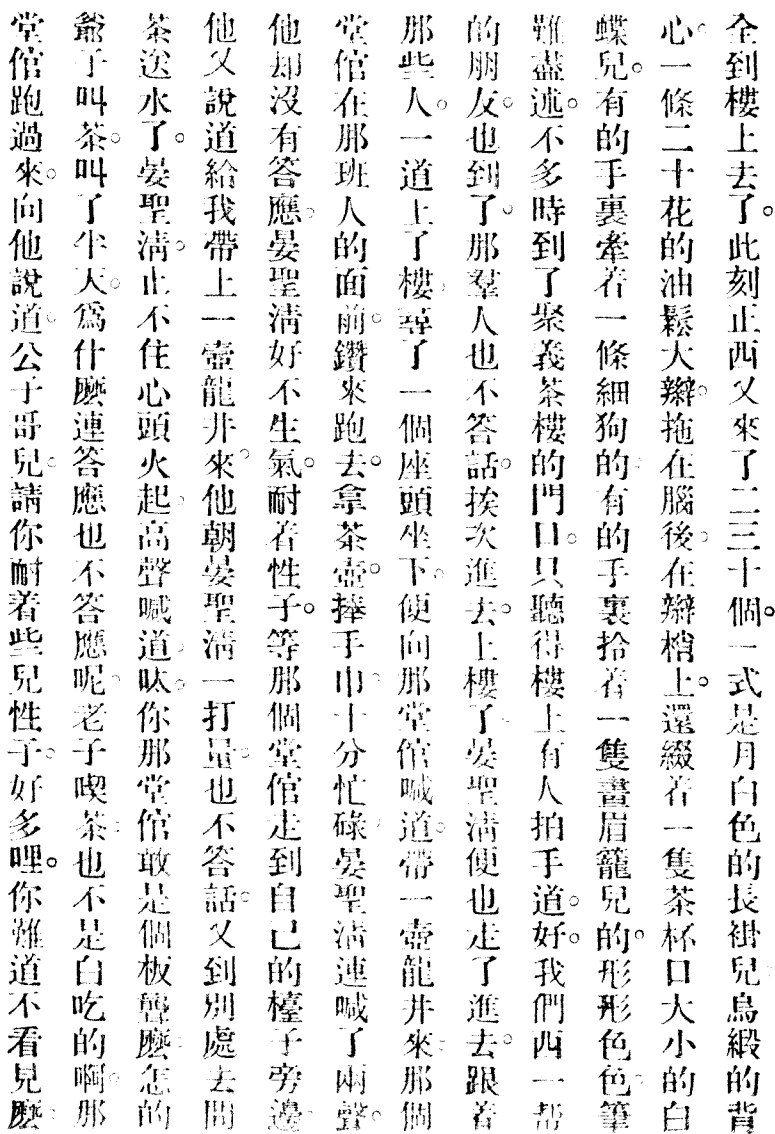 全到樓上去了。此刻正西又來了二三十個。一式是月白色的長褂兒烏緞的背
心。一條二十花的油鬆大辮。拖在腦後。在辮梢上。還綴着一隻茶杯口大小的白
蝶兒。有的手裏牽着一條細狗的。有的手裏拾着一隻畫眉籠兒的。形形色色。筆
難盡述。不多時到了聚義茶樓的門口。只聽得樓上有人拍手道。好。我們西一帮
的朋友。也到了。那羣人也不答話。挨次進去。上樓了。晏聖淸便也走了進去。跟着
那些人。一道上了樓。尋了一個座頭坐下。便向那堂倌喊道。帶一壺龍井來。那個
堂倌在那班人的面前。鑽來跑去。拿茶壺。捧手巾。十分忙碌。晏聖淸連喊了兩聲。
他却沒有答應。晏聖淸好不生氣。耐着性子。等那個堂倌走到自己的檯子旁邊。
他又說道給我帶上一壺龍井來。他朝晏聖淸一打量。也不答話。又到別處去問
茶送水了。晏聖淸。止不住心頭火起。高聲喊道。呔。你那堂倌敢是個板聾麽。怎的
爺子叫茶。叫了半天。爲什麽連答應也不答應呢。老子喫茶。也不是白吃的啊。那
堂倌跑過來。向他說道。公子哥兒。請你耐着些兒性子。好多哩。你難道不看見麽